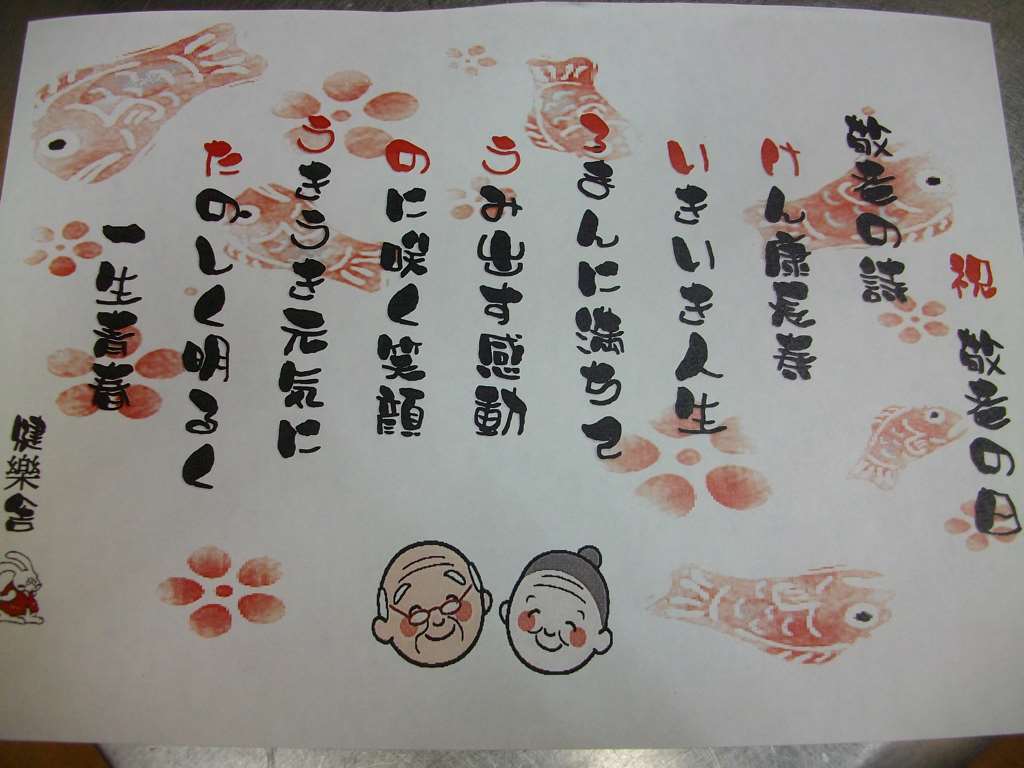 祝 敬老の日
敬老の詩
けん康長寿
いきいき人生
ろまんに満ちて
うみ出す感動
のに咲く笑顔
うきうき元気に
たのしく明るく
一生青春
健樂舎